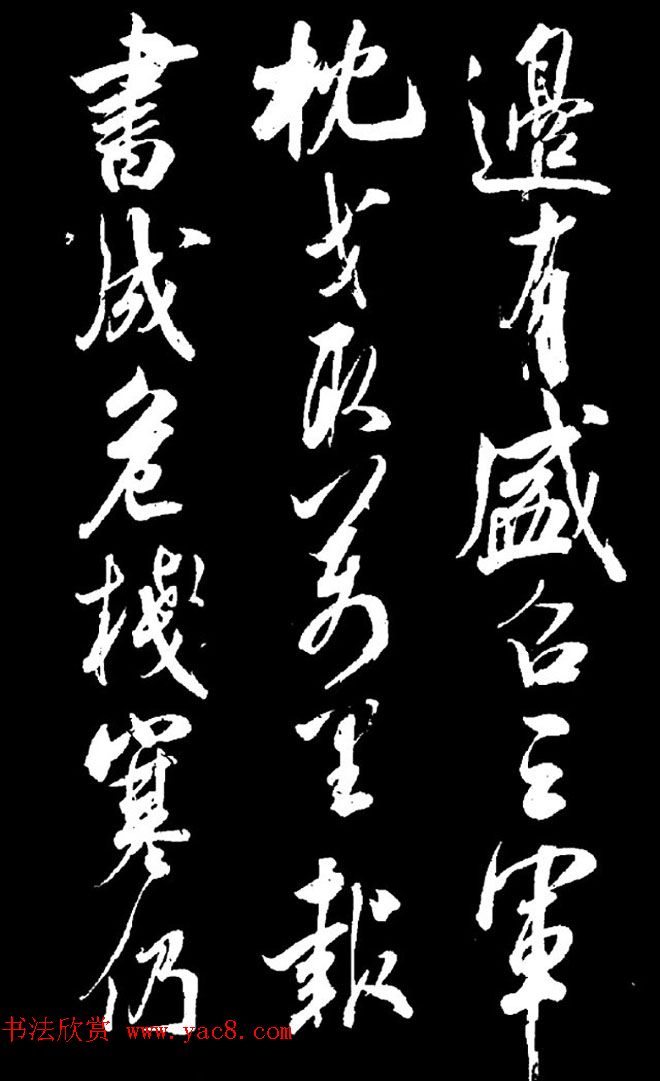 邊有盛名三軍
枕戈臥萬里報
書成危棧寒仍
书法欣赏 www.yac8.com